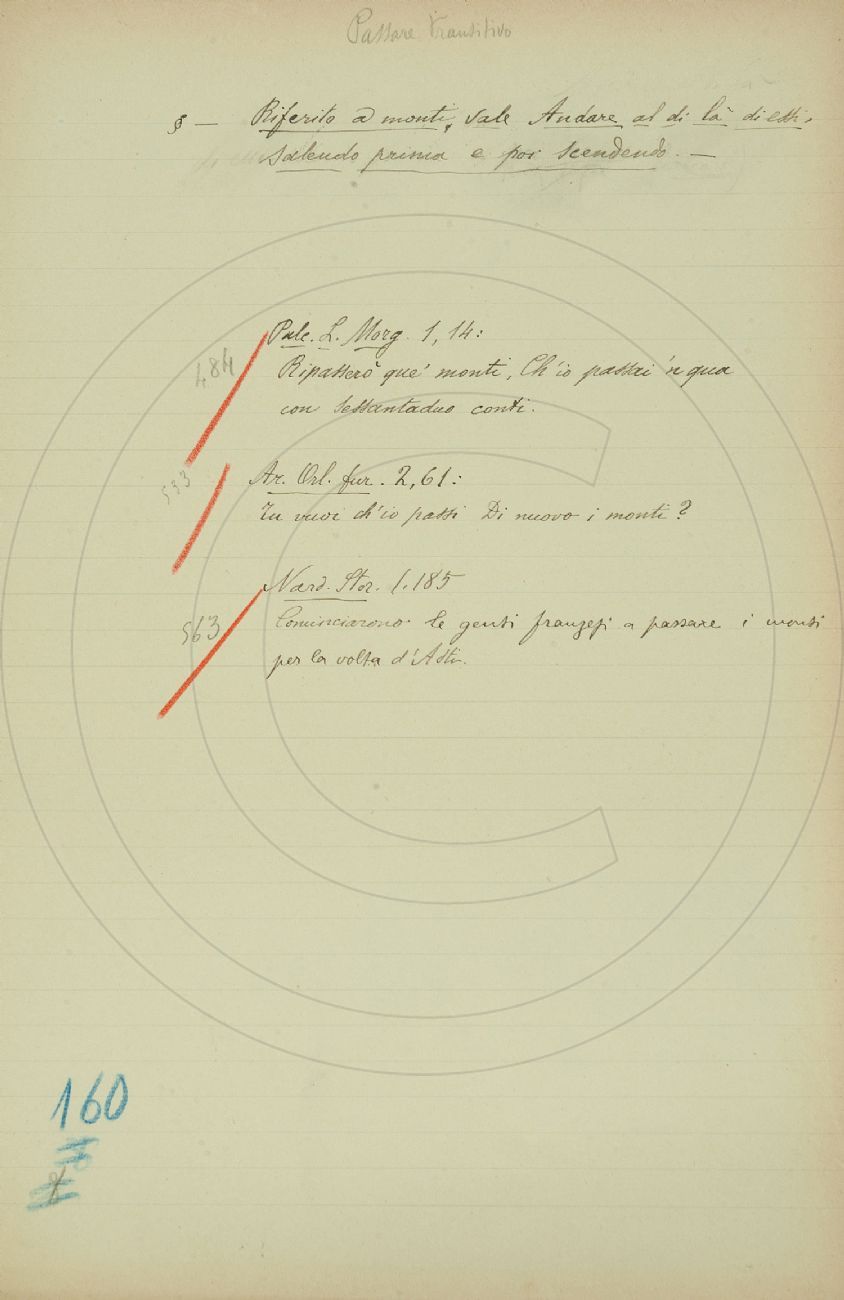 Passare transitivo
§ — Riferito a monti, vale Andare al di là di essi,
salendo prima e poi scendendo. —
Pulc. L. Morg. 1, 14:
484
Ripasserò que' monti, Ch'io passai 'n qua
con sessantadue conti.
Ar. Orl. fur. 2, 61:
533
Tu vuoi ch'io passi Di nuovo i monti?
Nard. Stor. 1. 185
563
Cominciarono le genti franzesi a passare i monti
per la volta d'Asti.
160